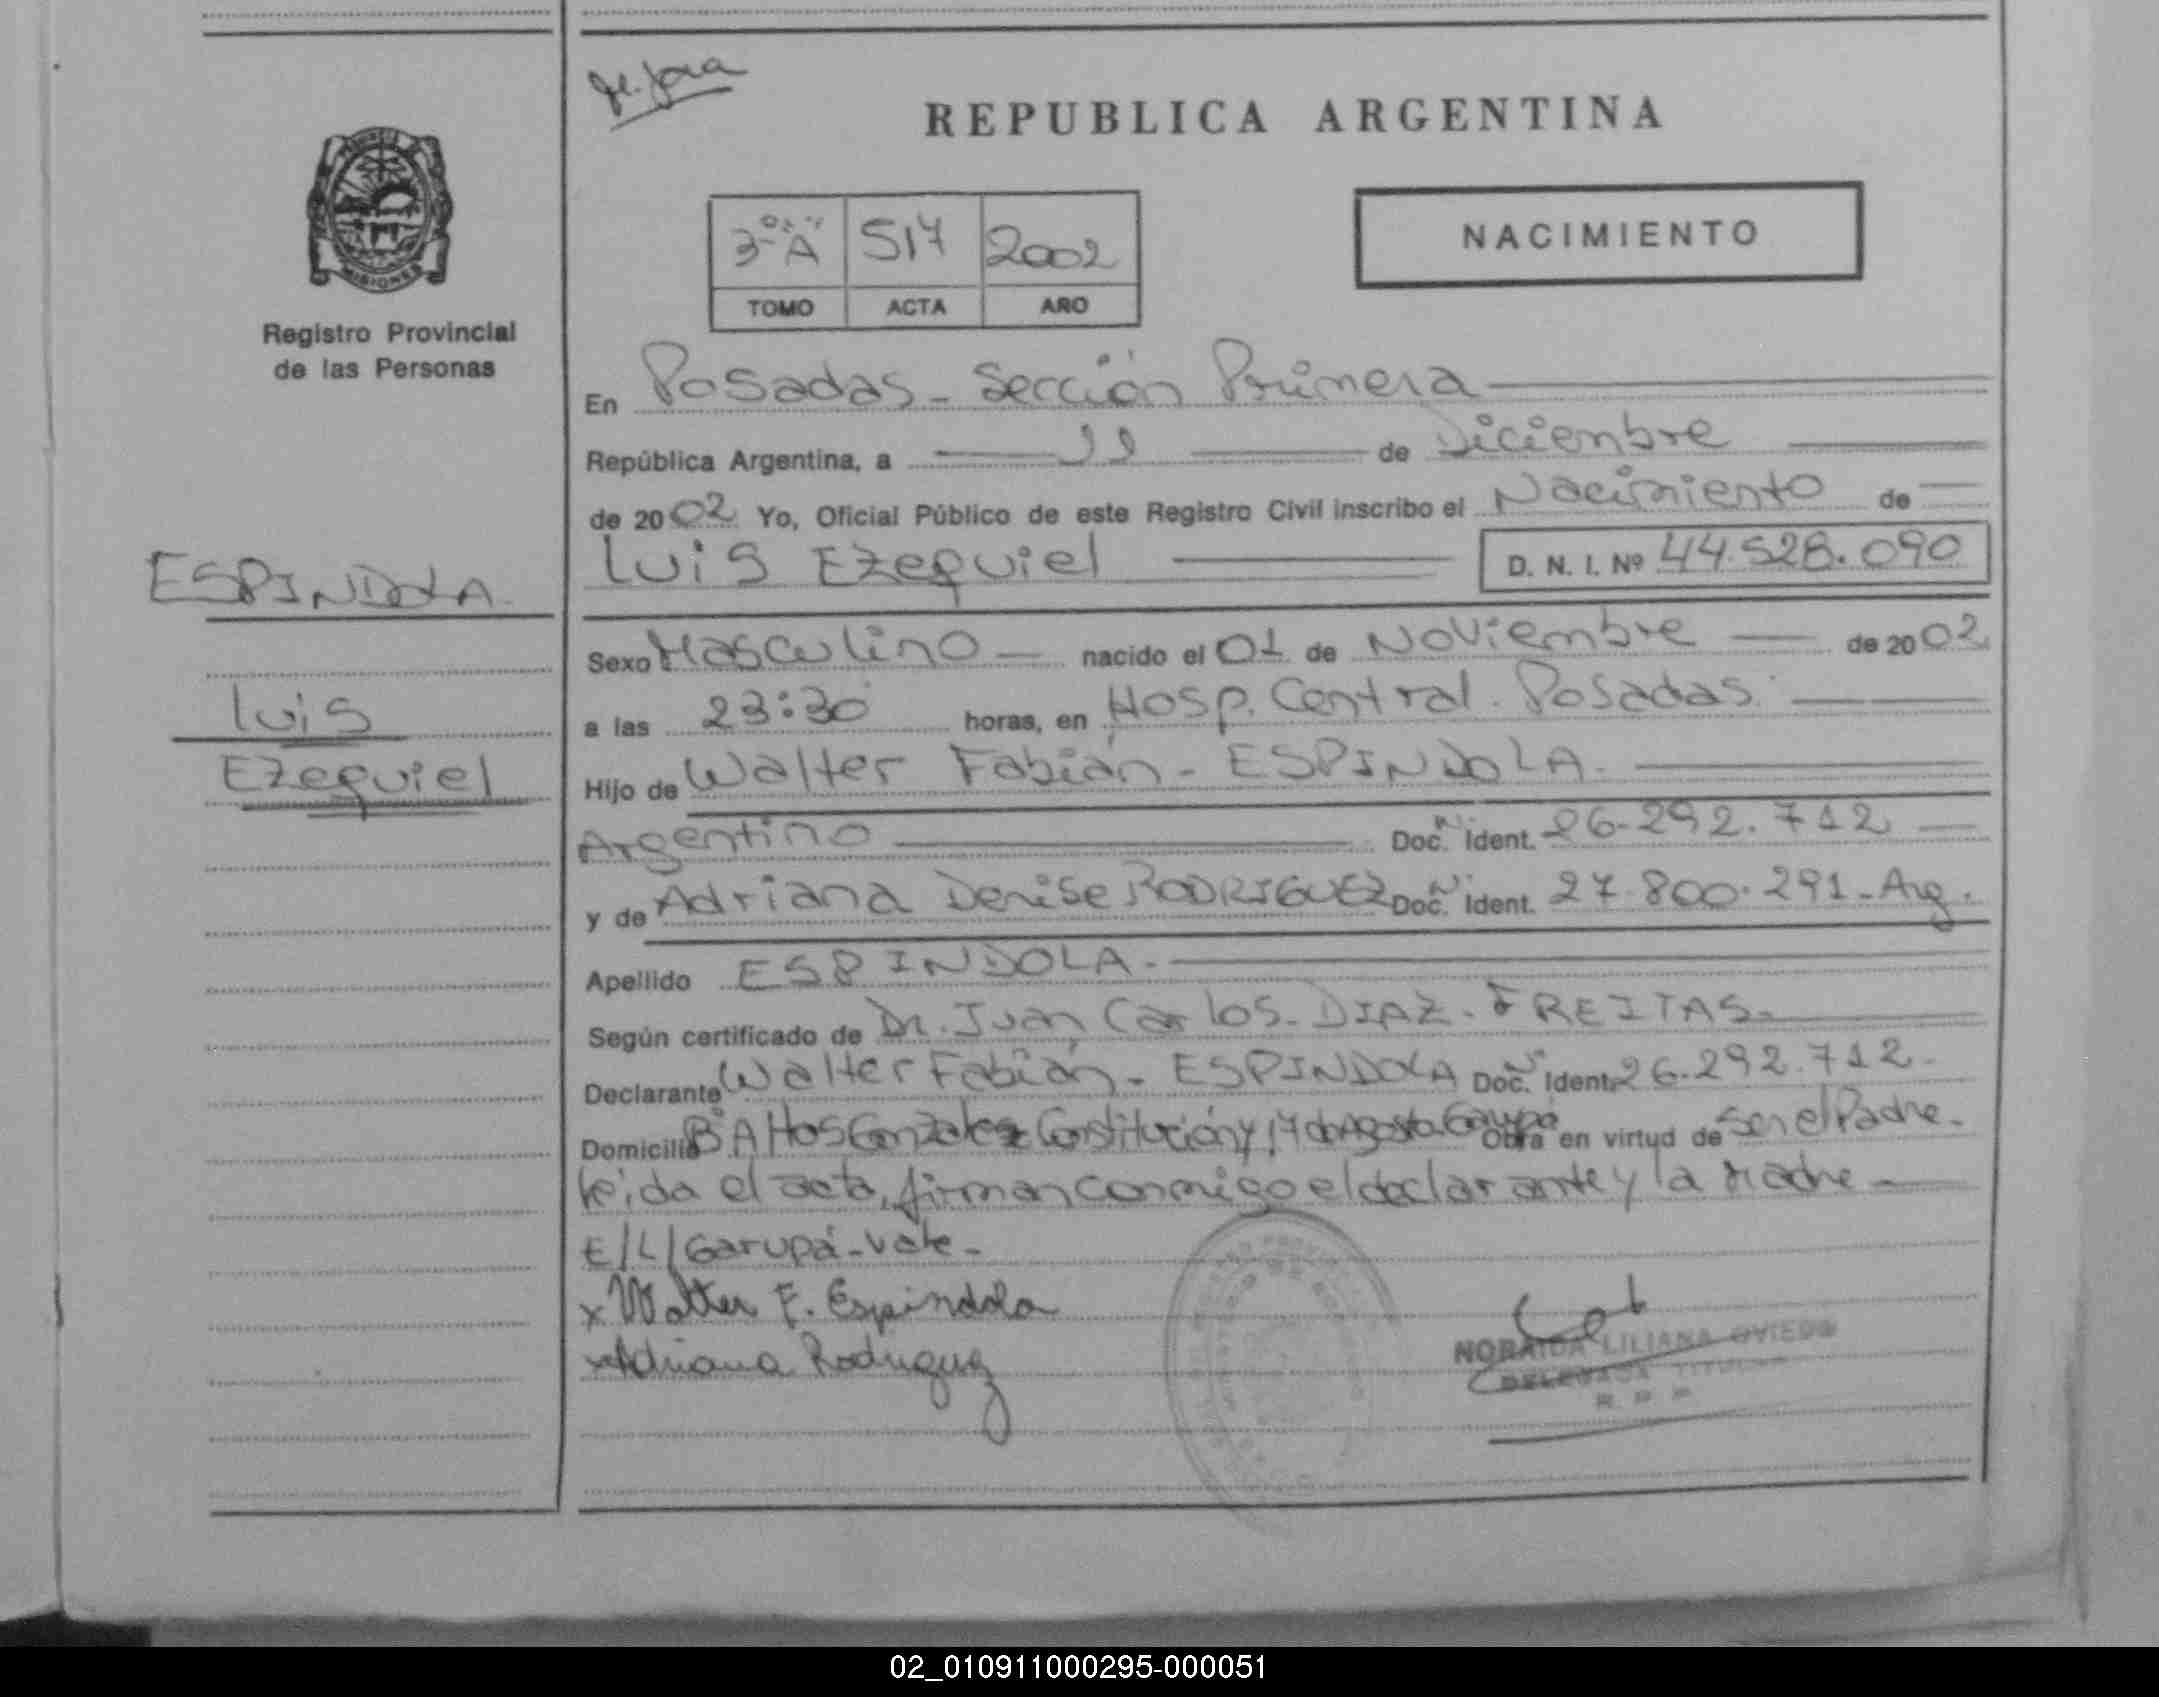 REPUBLICA ARGENTINA
NACIMIENTO
3º "A" 517 2002
TOMO ACTA AÑO
MISIONES
Registro Provincial
de las Personas
En Posadas - Sección Primera
República Argentina, a 11 de Diciembre
de 2002 Yo, Oficial Público de este Registro Civil inscribo el Nacimiento de
Luis Ezequiel D. N. I. Nº 44.528.090
ESPINDOLA
Luis
Ezequiel
Sexo Masculino nacido el 01 de Noviembre de 2002
a las 23:30 horas, en Hosp. Central. Posadas.
Hijo de Walter Fabián - ESPINDOLA.
Argentino Doc. Ident. 26.292.712
y de Adriana Denise RODRIGUEZ Doc. Ident. 27.800.291 - Arg.
Apellido ESPINDOLA.
Según certificado de Dr. Juan Carlos. DIAZ. FREITAS.
Declarante Walter Fabián - ESPINDOLA Doc. Ident. 26.292.712.
Domicilio Bº Altos Gonzales Constitución y 17 de Agosto. Garupá Obra en virtud de ser el Padre.
leida el acta, firman conmigo el declarante y la Madre
E/L/Garupá - Vale -
x Walter F. Espindola
x Adriana Rodriguez
NORAIDA LILIANA OVIEDO
DELEGADA TITULAR
R. P. P.
02_010911000295-000051